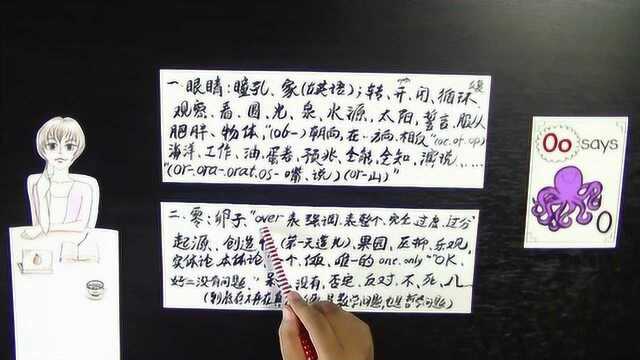 一眼睛:瞳孔、家(古英语);转、开、闭、循环、
观察、看、圆、光、泉、水源、太阳、誓言、服从
肥胖、物体、"(ob-)朝向,在…方向,相反"(oc.of.op)
海洋、工作、油、蛋卷、预兆、全能、全知、演说、……
(or-ora-orat.os-嘴、说)(or-山)"
二、零:卵子、"over表强调,表整个、完全、过度、过分
起源、创造(第一天造光)、果园、压抑、乐观,
实体论、本体论、个、唯一的one.only""OK,
好=没有问题、"没有、否定、反对、不、死、八
Oo says
O